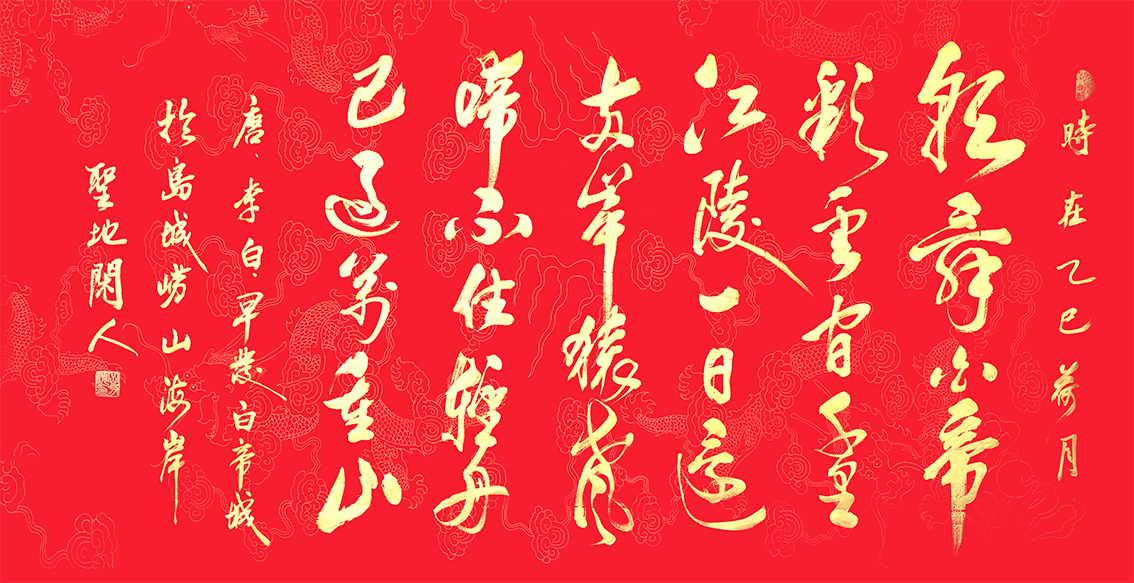 時在乙巳荷月
朝辞白帝
彩雲间千里
江陵一日還
两岸猿聲
啼不住輕舟
已過萬重山
唐、李白、早發白帝城
於島城嶗山海岸
聖地閑人